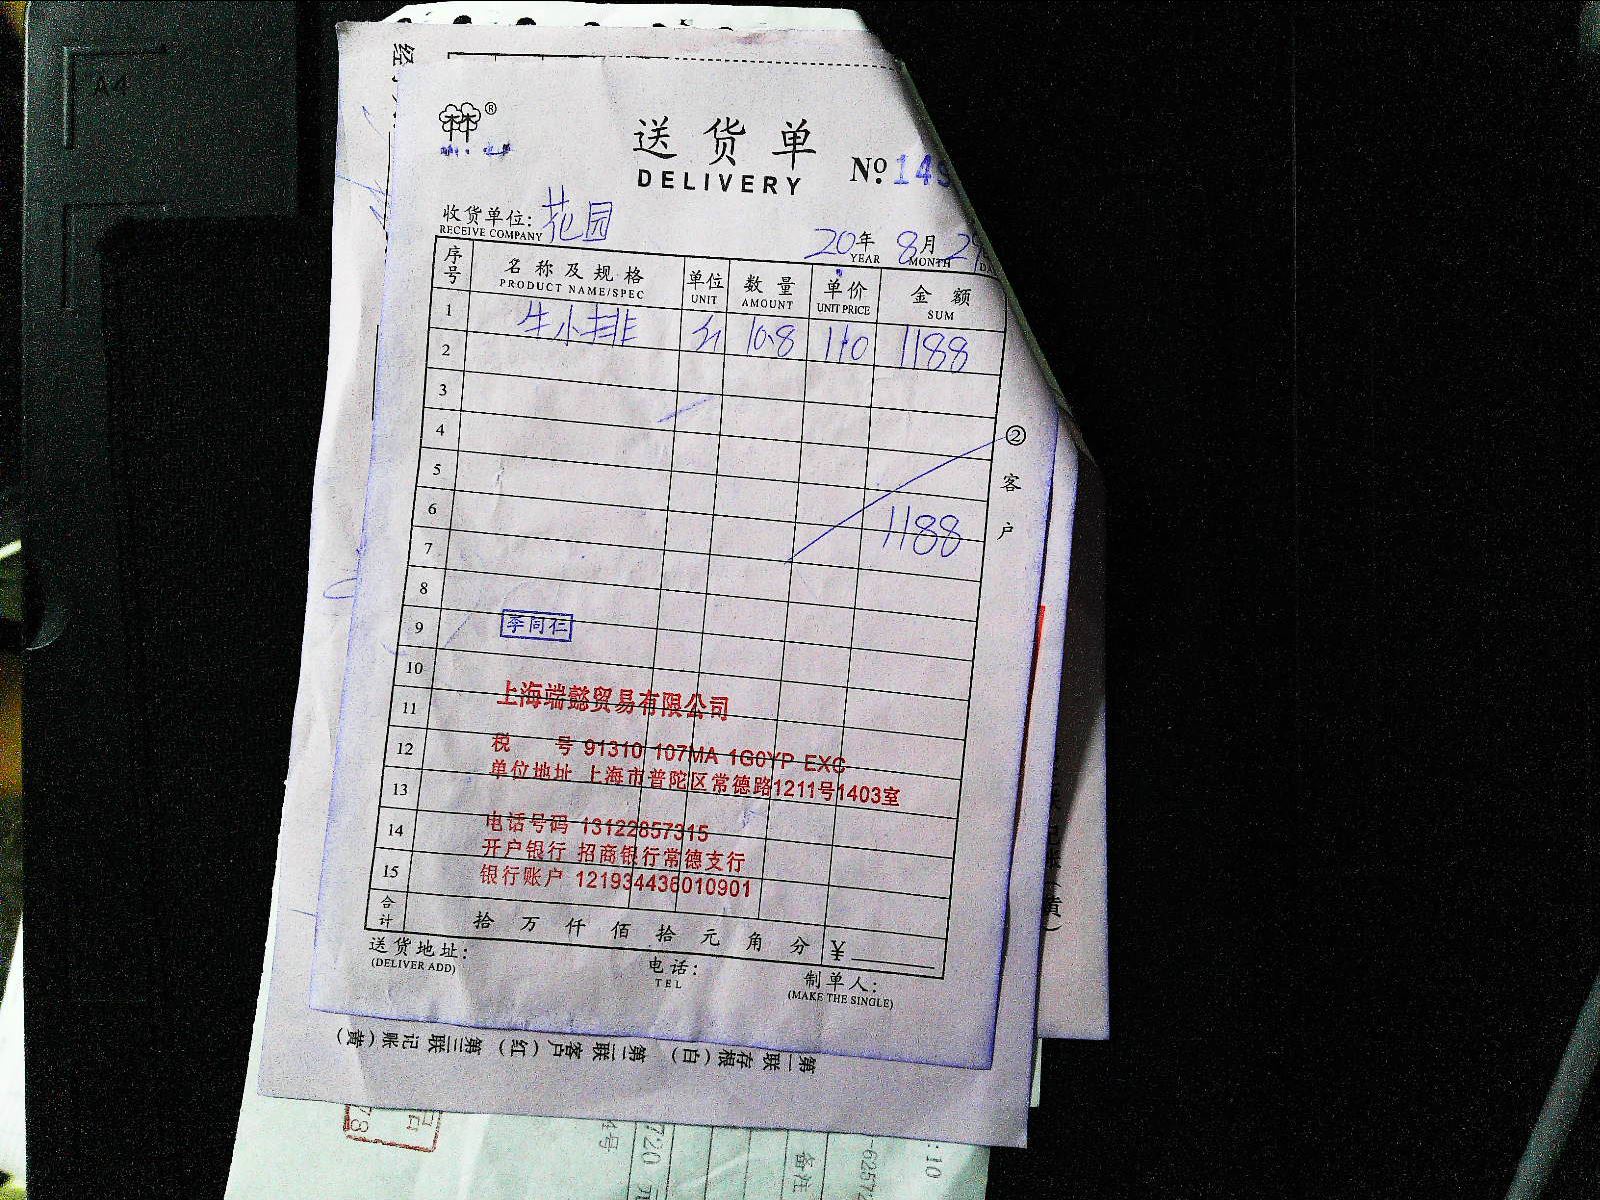 A4
送货单
DELIVERY
№ 149
收货单位: 花园
RECEIVE COMPANY
20年 8月 29
YEAR MONTH
序号 名称及规格 单位 数量 单价 金额
PRODUCT NAME/SPEC UNIT AMOUNT UNIT PRICE SUM
1 牛小排 斤 10.8 110 1188
2
3
4
5
6 1188
7
8
9 李同仁
10
上海端懿贸易有限公司
11
12 税 号 91310 107MA 1G0YP EXC
单位地址 上海市普陀区常德路1211号1403室
13
14 电话号码 13122857315
开户银行 招商银行常德支行
15 银行账户 121934436010901
合计 拾 万 仟 佰 拾 元 角 分 ¥
送货地址: 电话: 制单人:
(DELIVER ADD) TEL (MAKE THE SINGLE)
② 客户
第一联存根(白) 第二联客户(红) 第三联记账(黄)
备注